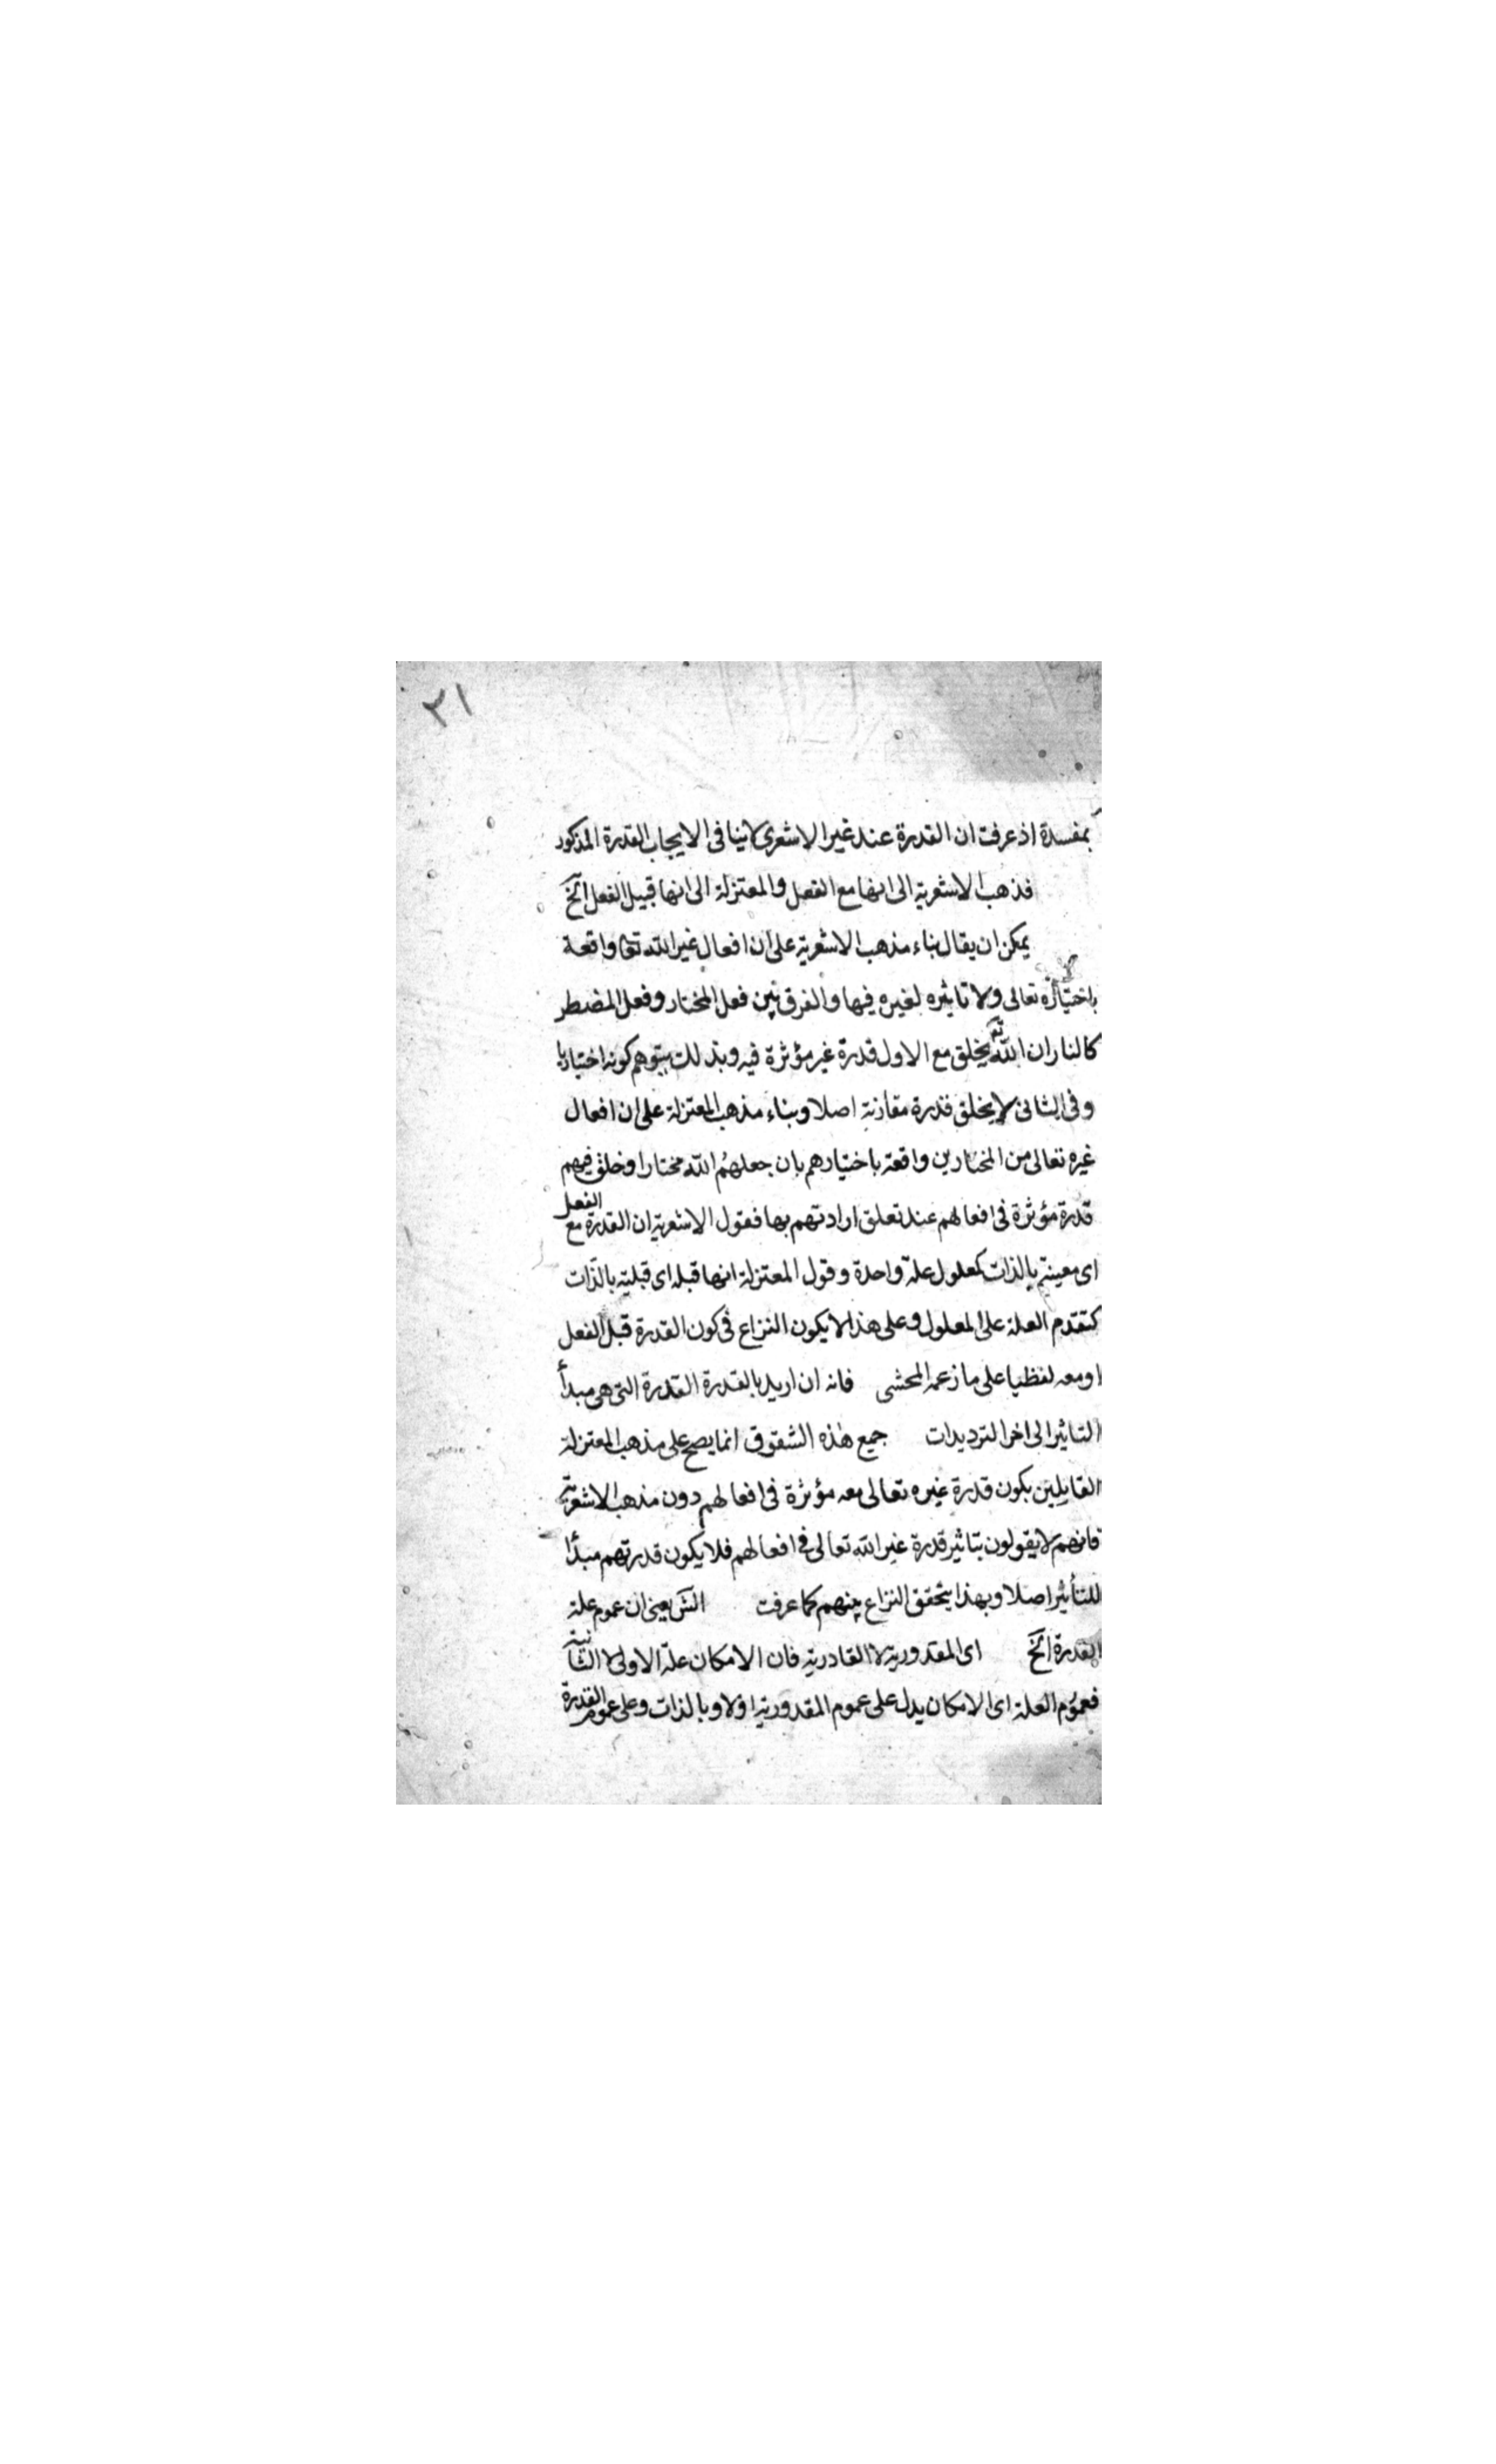 ٣١
بمفسدة اذ عرفت ان القدرة عند غير الاشعرى لا ينافى الايجاب القدرة المذكور
فذهب الاشعرية الى انها مع الفعل والمعتزلة الى انها قبيل الفعل الخ
يمكن ان يقال بناء مذهب الاشعرية على ان افعال غير الله تعا واقعة
باختياره تعالى ولا تاثيره لغيره فيها والفرق بين فعل المختار وفعل المضطر
كالنار ان الله تع يخلق مع الاول قدرة غير مؤثرة فيه وبذلك يتوهم كونه اختياريا
وفى الثانى لا يخلق قدرة مقارنة اصلا وبناء مذهب المعتزلة على ان افعال
غيره تعالى من المختارين واقعة باختيارهم بان جعلهم الله مختارا وخلق فيهم
قدرة مؤثرة فى افعالهم عند تعلق ارادتهم بها فقول الاشعرية ان القدرة مع الفعل
اى معية بالذات كمعلول علة واحدة وقول المعتزلة انها قبله اى قبلية بالذات
كتقدم العلة على المعلول وعلى هذا لا يكون النزاع فى كون القدرة قبل الفعل
او معه لفظيا على ما زعمه المحشى فانه ان اريد بالقدرة القدرة التى هى مبدأ
التاثير الى اخر الترديدات جميع هذه الشقوق انما يصح على مذهب المعتزلة
القايلين بكون قدرة غيره تعالى معه مؤثرة فى افعالهم دون مذهب الاشعرية
فانهم لا يقولون بتاثير قدرة غير الله تعالى فى افعالهم فلا يكون قدرتهم مبدأ
للتأثير اصلا وبهذا يتحقق النزاع بينهم كما عرفت الش يعنى ان عموم علة
القدرة الخ اى المقدورية لا القادرية فان الامكان علة الاولى لا الثانية
فعموم العلة اى الامكان يدل على عموم المقدورية اولا وبالذات وعلى عموم القدرة